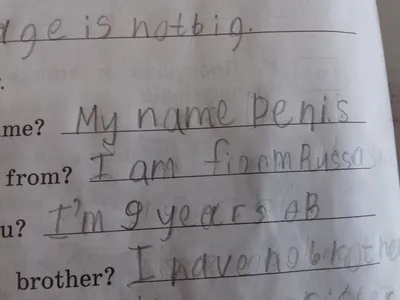 age is not big.
me? My name Denis
from? I am from Russa
u? I'm 9 years AB
brother? I have no brothe